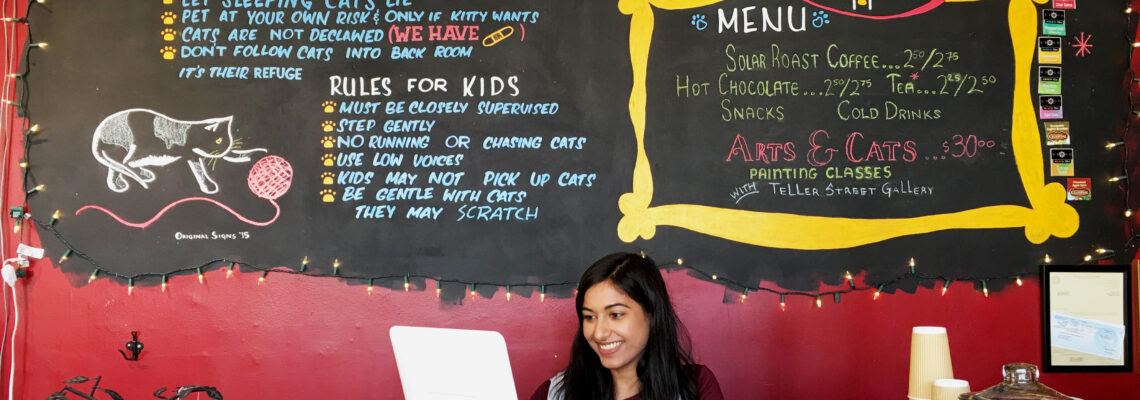 LET SLEEPING CATS LIE
PET AT YOUR OWN RISK & ONLY IF KITTY WANTS
CATS ARE NOT DECLAWED (WE HAVE )
DON'T FOLLOW CATS INTO BACK ROOM
IT'S THEIR REFUGE
RULES FOR KIDS
MUST BE CLOSELY SUPERVISED
STEP GENTLY
NO RUNNING OR CHASING CATS
USE LOW VOICES
KIDS MAY NOT PICK UP CATS
BE GENTLE WITH CATS
THEY MAY SCRATCH
ORIGINAL SIGNS '15
MENU
SOLAR ROAST COFFEE...2⁵⁰/2⁷⁵
HOT CHOCOLATE...2⁵⁰/2⁷⁵ TEA*...2²⁵/2⁵⁰
SNACKS COLD DRINKS
ARTS & CATS ...$30⁰⁰
PAINTING CLASSES
WITH TELLER STREET GALLERY